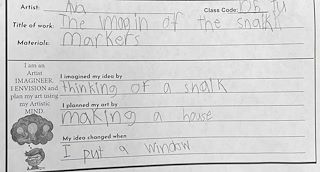 Artist: An Class Code:
Title of work: The imagin of the snalk
Materials: Markers
I am an
Artist
IMAGINEER.
I ENVISION and
plan my art using
my Artistic
MIND
I imagined my idea by
thinking of a snalk
I planned my art by
making a house
My idea changed when
I put a window